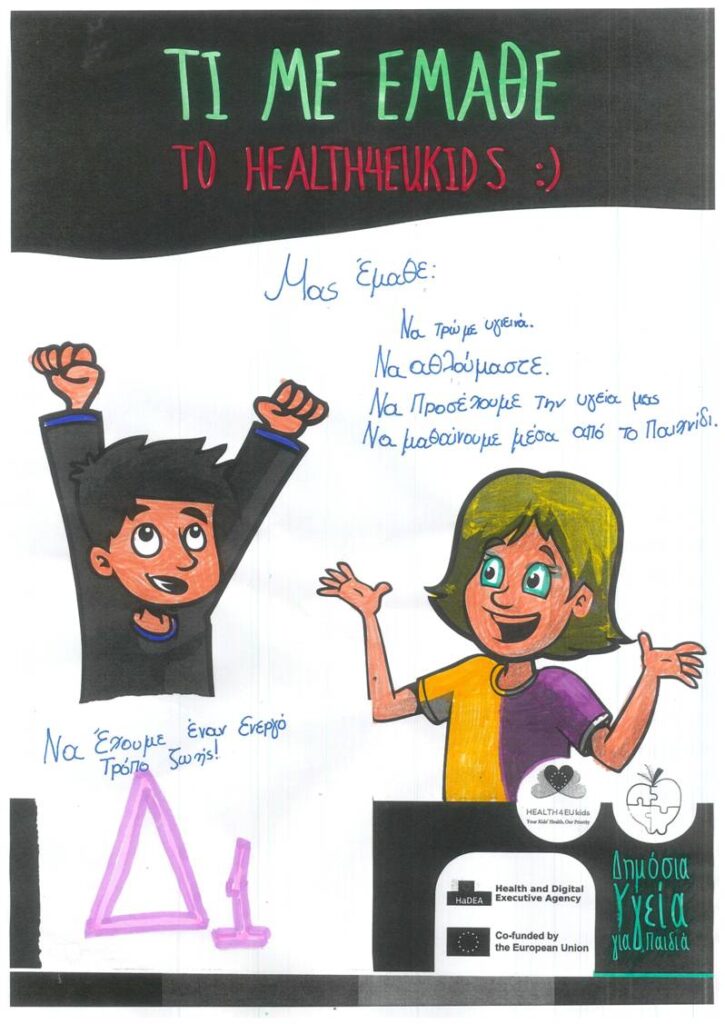 ΤΙ ΜΕ ΕΜΑΘΕ
ΤΟ HEALTH4EUKIDS :)
Μας έμαθε:
Να τρώμε υγιεινά.
Να αθλούμαστε.
Να Προσέχουμε την υγεία μας
Να μαθαίνουμε μέσα από το Παιχνίδι.
Να Έχουμε έναν ενεργό
Τρόπο ζωής!
Δ1
HEALTH4EUkids
Your Kids' Health, Our Priority
HaDEA
Health and Digital
Executive Agency
Co-funded by
the European Union
Δημόσια
Υγεία
για Παιδιά